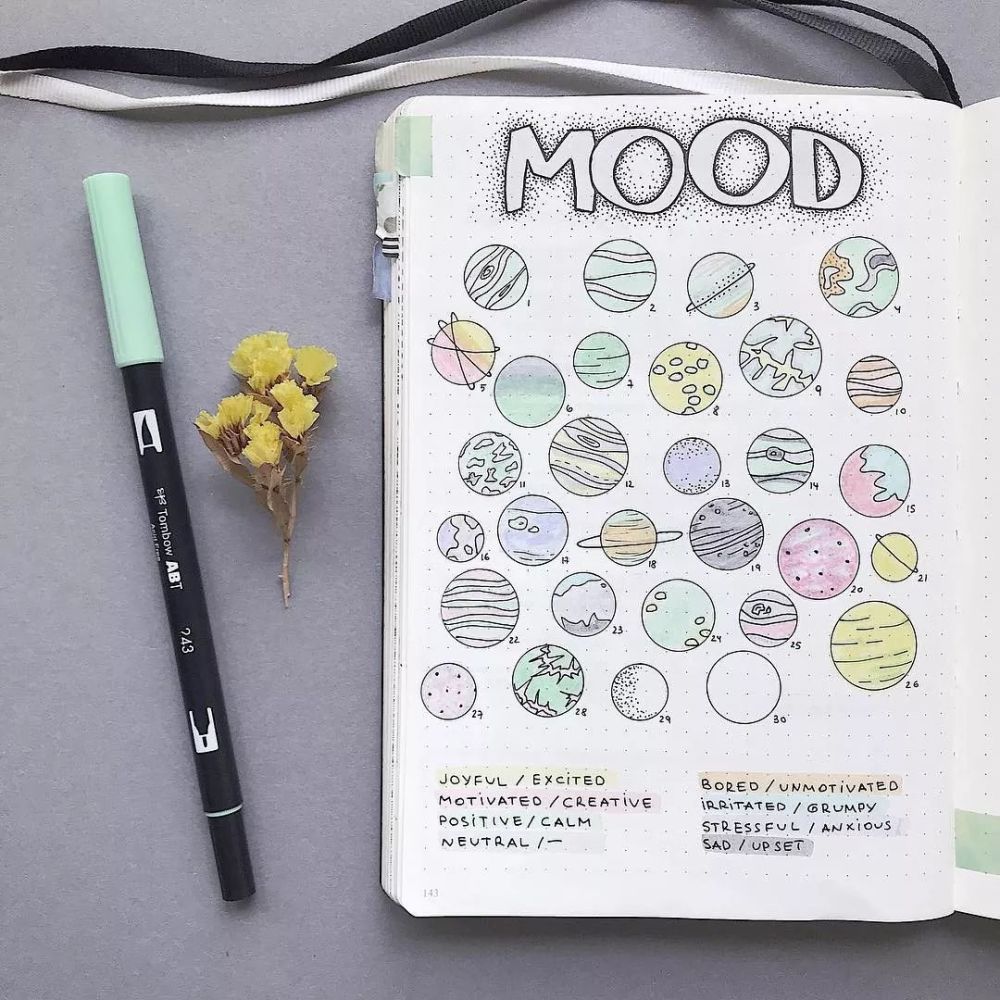 MOOD
1
2
3
4
5
6
7
8
9
10
11
12
13
14
15
16
17
18
19
20
21
22
23
24
25
26
27
28
29
30
JOYFUL / EXCITED
MOTIVATED / CREATIVE
POSITIVE / CALM
NEUTRAL / —
BORED / UNMOTIVATED
IRRITATED / GRUMPY
STRESSFUL / ANXIOUS
SAD / UPSET
143
Tombow ABT
243